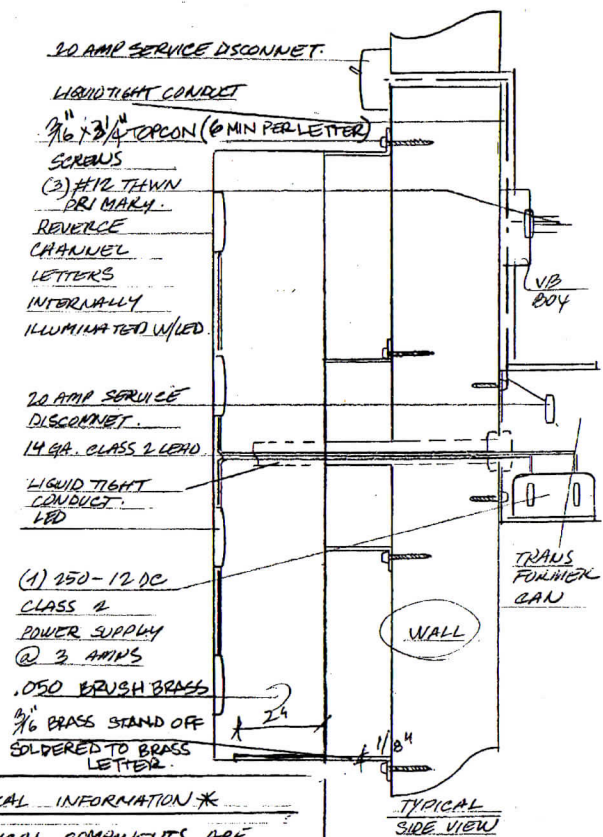 20 AMP SERVICE DISCONNET.
LIQUIDTIGHT CONDUCT
3/16" x 3 1/4" TOPCON (6 MIN PER LETTER)
SCREWS
(3) #12 THWN
PRIMARY.
REVERCE
CHANNEL
LETTERS
INTERNALLY
ILLUMINATED W/LED.
VB
BOX
20 AMP SERVICE
DISCONNET.
14 GA. CLASS 2 LEAD
LIQUID TIGHT
CONDUCT.
LED
TRANS
FORMER
CAN
(1) 250-12 DC
CLASS 2
POWER SUPPLY
@ 3 AMPS
WALL
.050 BRUSH BRASS
2"
3/16 BRASS STAND OFF
SOLDERED TO BRASS
LETTER.
1/8"
TYPICAL
SIDE VIEW
CAL INFORMATION *
COMPONENTS ARE